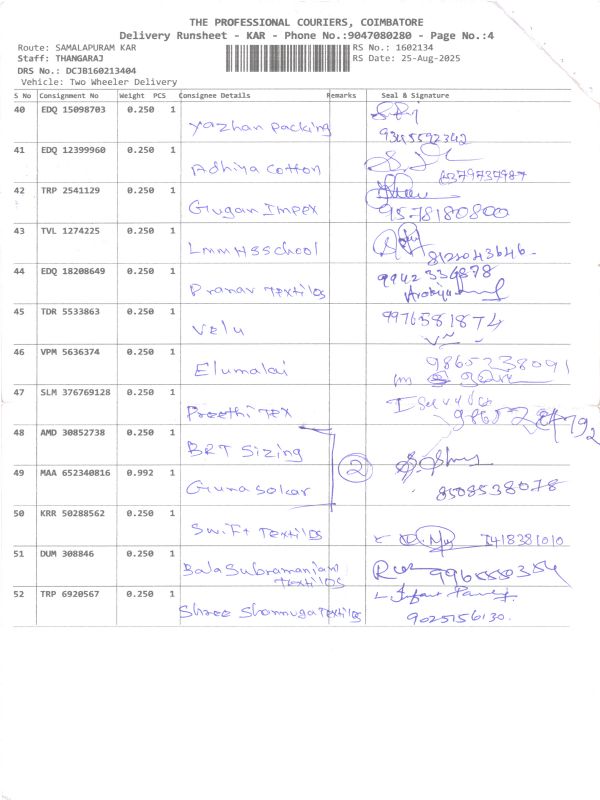 THE PROFESSIONAL COURIERS, COIMBATORE
Delivery Runsheet - KAR - Phone No.:9047080280 - Page No.:4
Route: SAMALAPURAM KAR
RS No.: 1602134
Staff: THANGARAJ
RS Date: 25-Aug-2025
DRS No.: DCJB160213404
Vehicle: Two Wheeler Delivery
S No Consignment No Weight PCS Consignee Details Remarks Seal & Signature
40 EDQ 15098703 0.250 1
Yazhan Packing 9345592342
41 EDQ 12399960 0.250 1
Adhiya Cotton 6379737987
42 TRP 2541129 0.250 1
Gugan Impex 9578180800
43 TVL 1274225 0.250 1
Lmm HSSchool 8122043646.
44 EDQ 18208649 0.250 1 9942334878
Pranav Textilos
45 TDR 5533863 0.250 1 9976581874
Velu
46 VPM 5636374 0.250 1 9865238091
Elumalai
47 SLM 376769128 0.250 1
Preethi Tex
48 AMD 30852738 0.250 1
BRT Sizing
49 MAA 652340816 0.992 1 2
Guna Solar 8508538078
50 KRR 50288562 0.250 1
Swift Textilos 7418381010
51 DUM 308846 0.250 1
Bala Subramaniam
Textilos
52 TRP 6920567 0.250 1
Shree Shanmuga Textilos 9025156130.